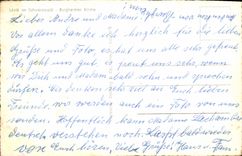 Lieber Andre und Madame
Vor allem danke ich herzlich für die lieben
Grüße und Foto, es hat uns alle sehr gefreut.
Es geht uns gut es freut uns sehr, wenn
wir Dich und Madame bald sehn und sprechen
dürfen. Wir denken sehr viel an Euch lieben
Freunde, wo werden auch ein Foto von uns
senden. Hoffentlich kann Madame
deutsch verstehen noch. Laßt bald wieder
von Euch hören, Viele Grüße, Hans u. Fam.